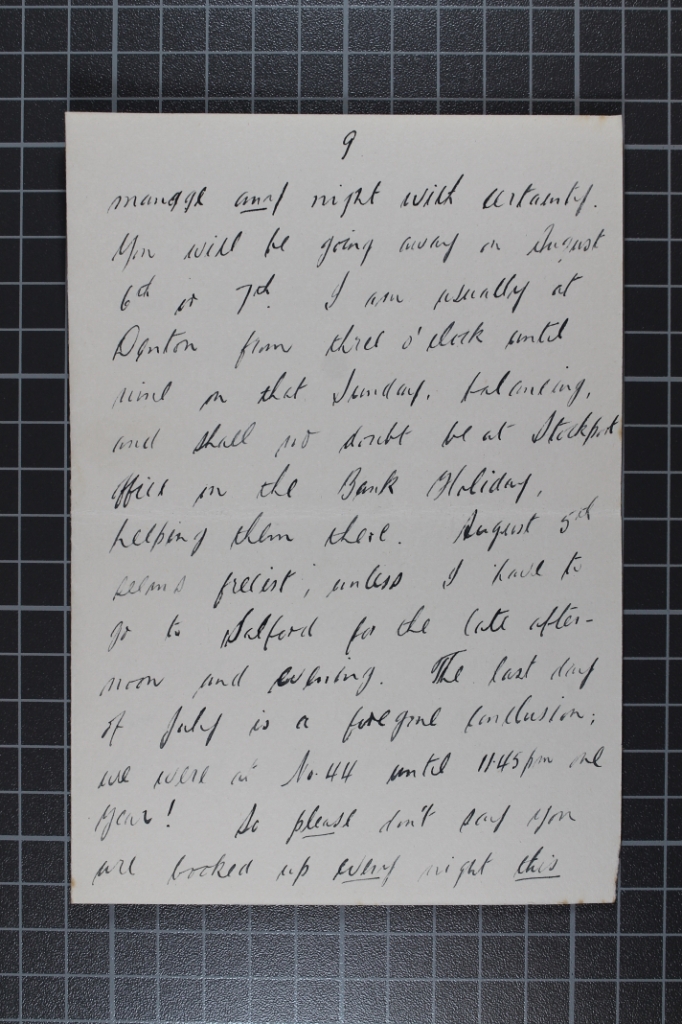 9
manage any night with certainty.
You will be going away on August
6th or 7th. I am usually at
Denton from three o'clock until
nine on that Sunday, balancing,
and shall no doubt be at Stockport
office on the Bank Holiday,
helping them there. August 5th
seems freest; unless I have to
go to Salford for the late after-
noon and evening. The last day
of July is a foregone conclusion;
we were at No. 44 until 11.45 pm one
year! So please don't say you
are booked up every night this